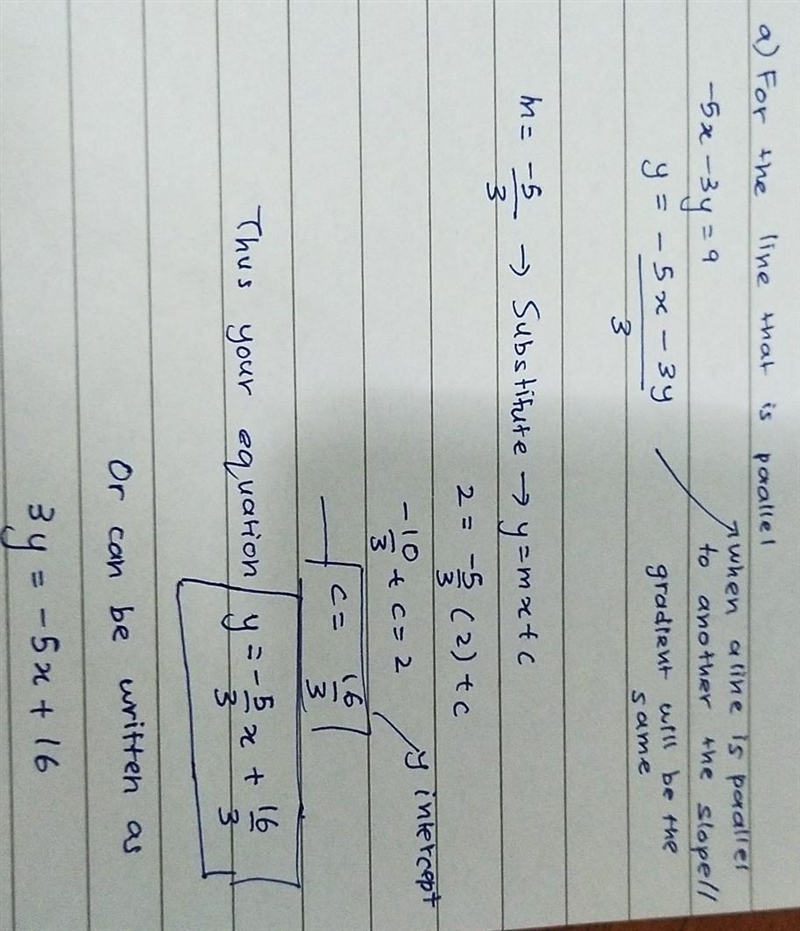 a) For the line that is parallel
-5x - 3y = 9
when a line is parallel
to another the slope//
gradient will be the
same
y = -5x - 3y
3
m = -5/3 → Substitute → y = mx + c
2 = -5/3 (2) + c
-10/3 + c = 2
y intercept
c = 16/3
Thus your equation y = -5/3 x + 16/3
Or can be written as
3y = -5x + 16